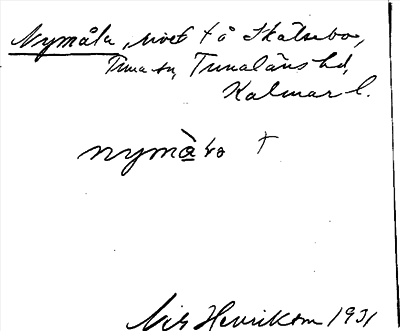 Nymåla, rivet t å Skälsebo,
Tuna sn, Tunaläns hd,
Kalmar l.
nymå̀ <u>a</u> †
Nils Henrikson 1931